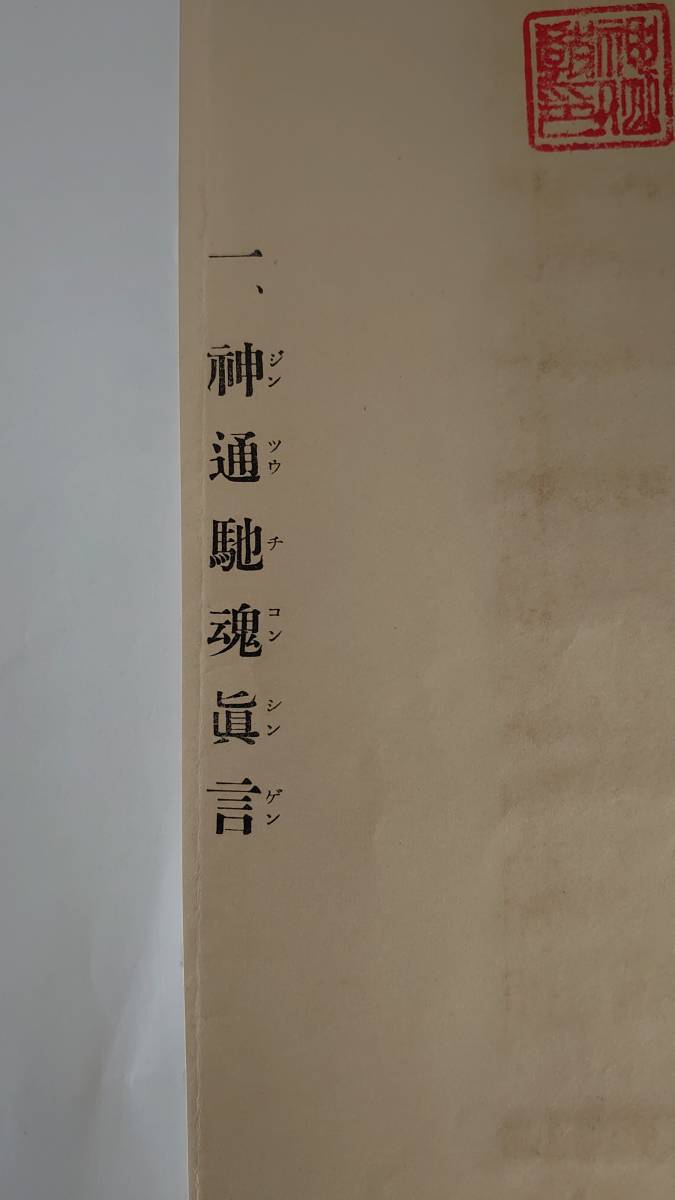 一、神通馳魂眞言
ジンツウチコンシンゲン